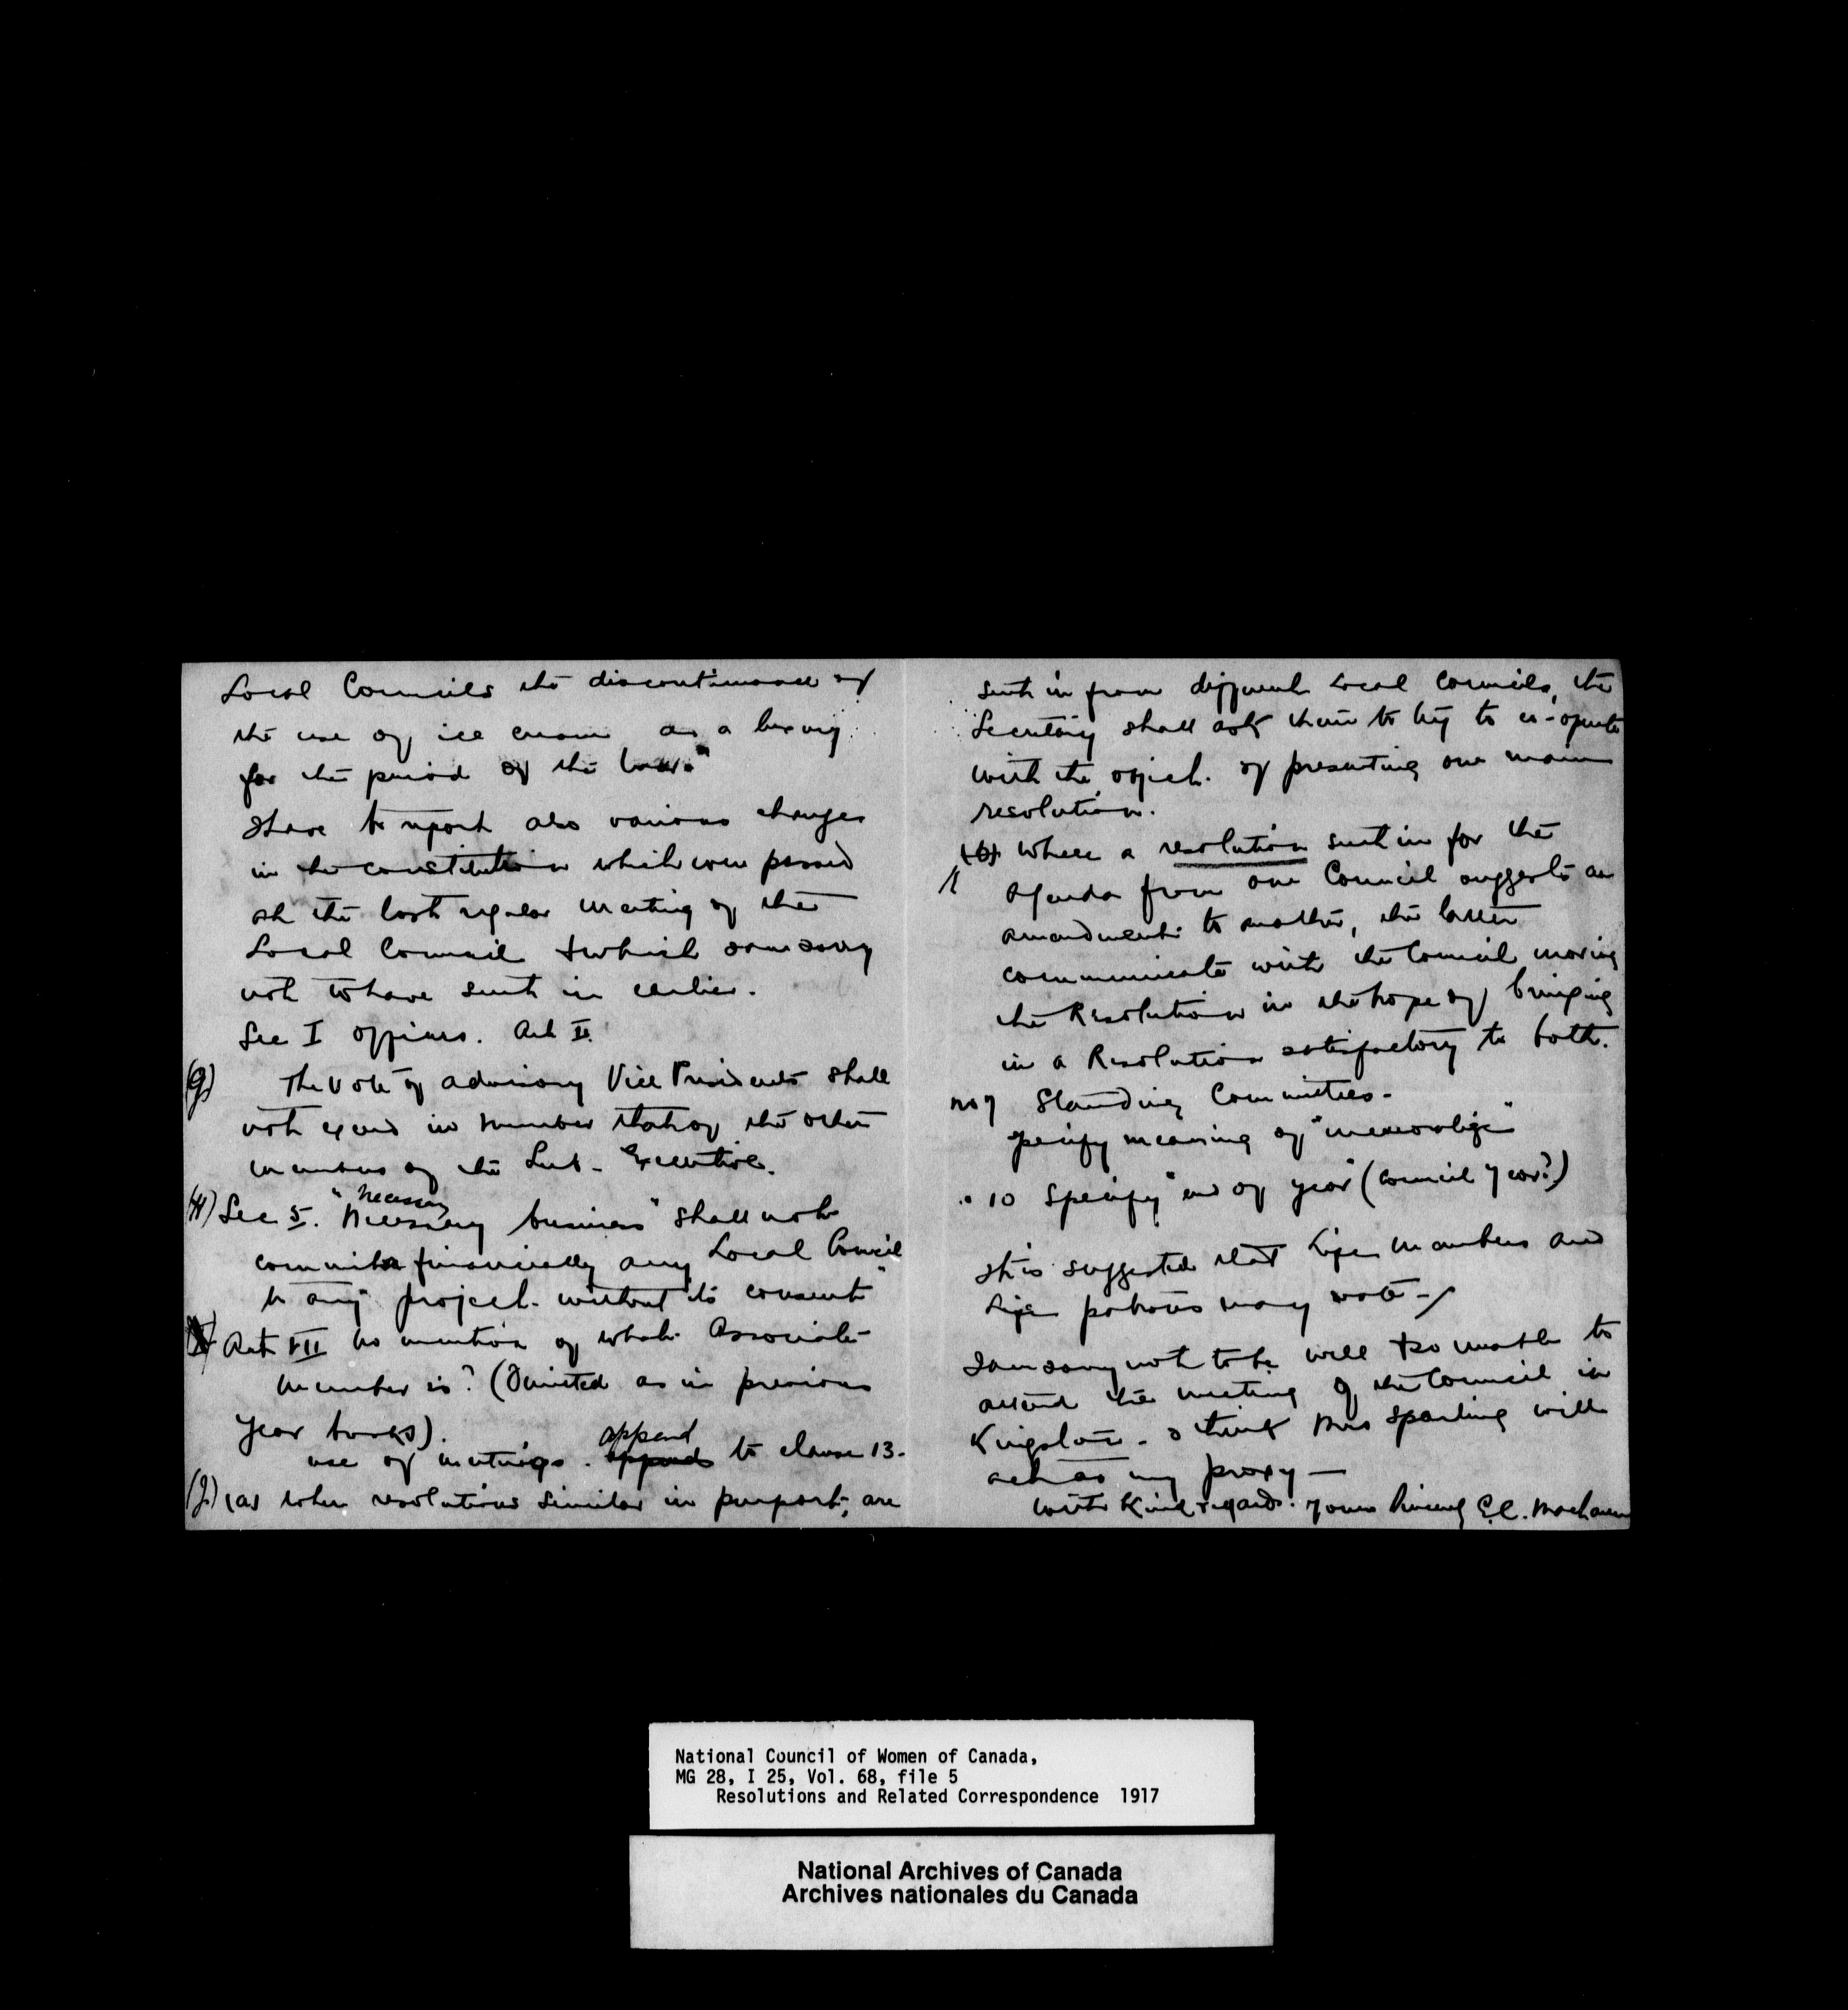 Local Councils the discontinuance of
the use of ice cream as a luxury
for the period of the war."
I have to report also various changes
in the constitution which were passed
at the last regular meeting of the
Local Council & which I am sorry
not to have sent in earlier.
Sec I officers. Art II
(g) The vote of advisory Vice Presidents shall
not exceed in number that of the other
members of the Sub-Executive.
necessary
(H) Sec 5. "Necessary business" shall not
commit financially any Local Council
to any project without its consent"
Art VII no mention of what Associate
member is? (Omitted as in previous
year books).
append
use of meetings. append to clause 13-
(J) (a) when resolutions similar in purport, are
sent in from different Local Councils, the
Secretary shall ask them to try to co-operate
with the object of presenting one main
resolution.
(b) Where a resolution sent in for the
Agenda from one Council suggests an
amendment to another, the latter
communicate with the Council moving
the Resolution in the hope of bringing
in a Resolution satisfactory to both.
No 7 Standing Committees-
specify meaning of
" 10 Specify "end of year" (Council year?)
It is suggested that Life Members and
Life patrons may vote-
I am sorry not to be well & so unable to
attend the meeting of the Council in
Kingston - I think Mrs Sparling will
act as my proxy —
With kind regards. Yours sincerely E.C.
National Council of Women of Canada,
MG 28, I 25, Vol. 68, file 5
Resolutions and Related Correspondence 1917
National Archives of Canada
Archives nationales du Canada